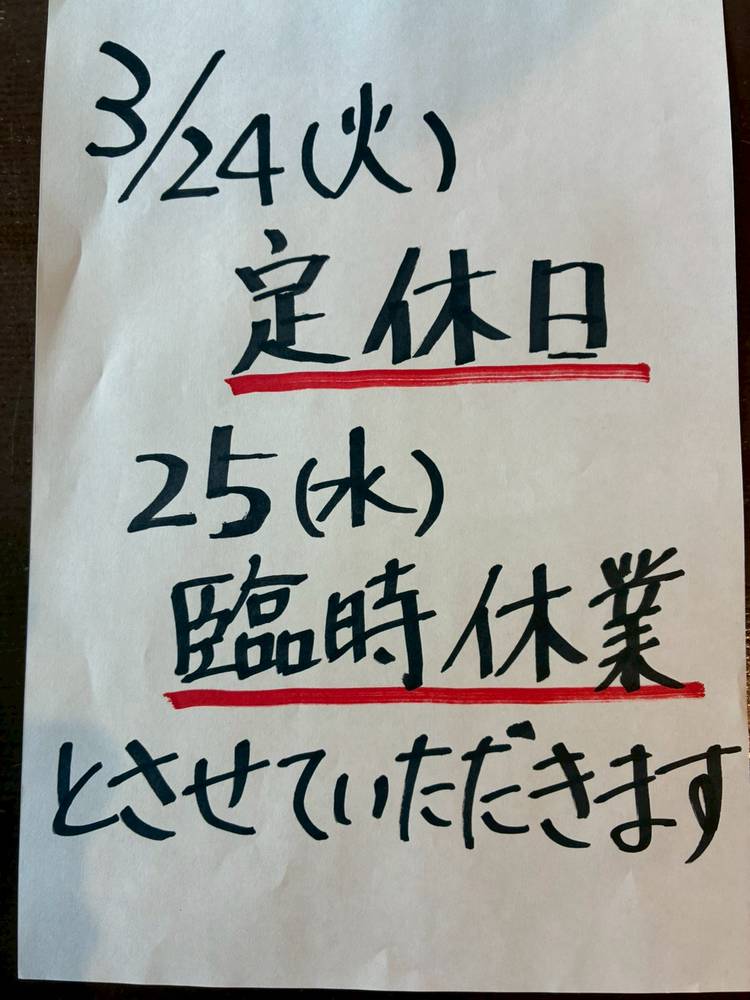 3/24(火)
定休日
25(水)
臨時休業
とさせていただきます